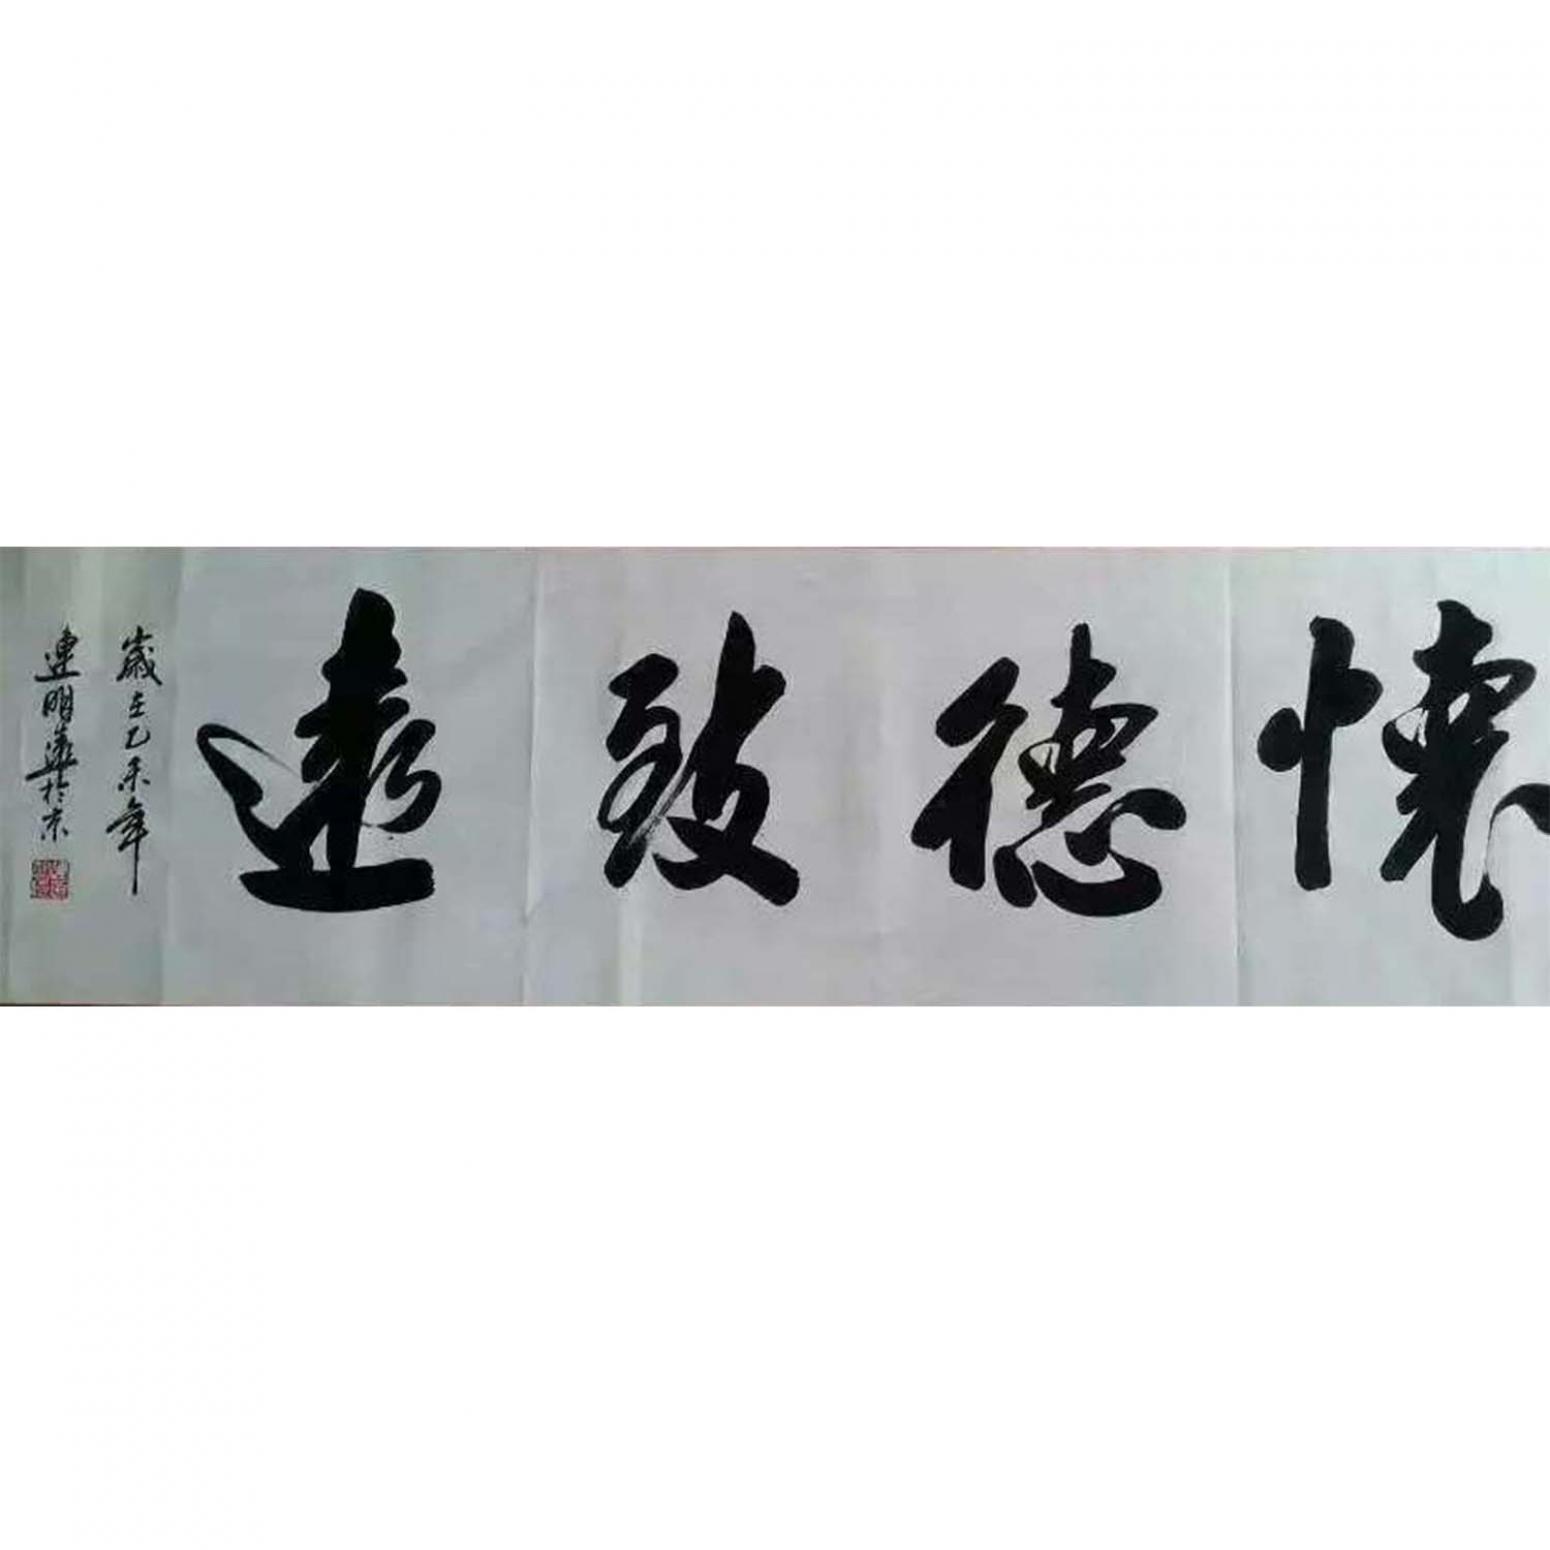 懷德致遠
歲在乙未年
連明華於京